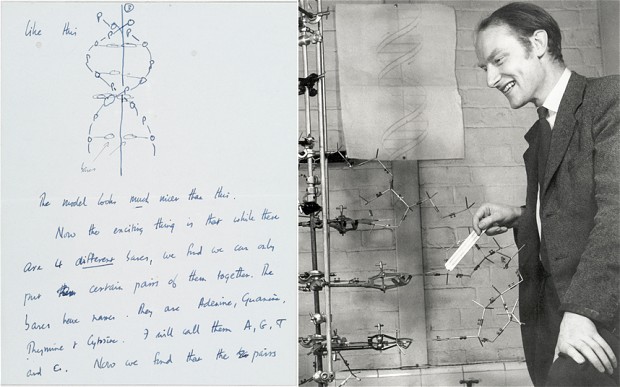 like this
P
P
P
P
P
P
P
bases
The model looks much nicer than this.
Now the exciting thing is that while there
are 4 different bases, we find we can only
put certain pairs of them together. The
bases have names. They are Adenine, Guanine,
Thymine & Cytosine. I will call them A, G, T
and C. Now we find that the pairs